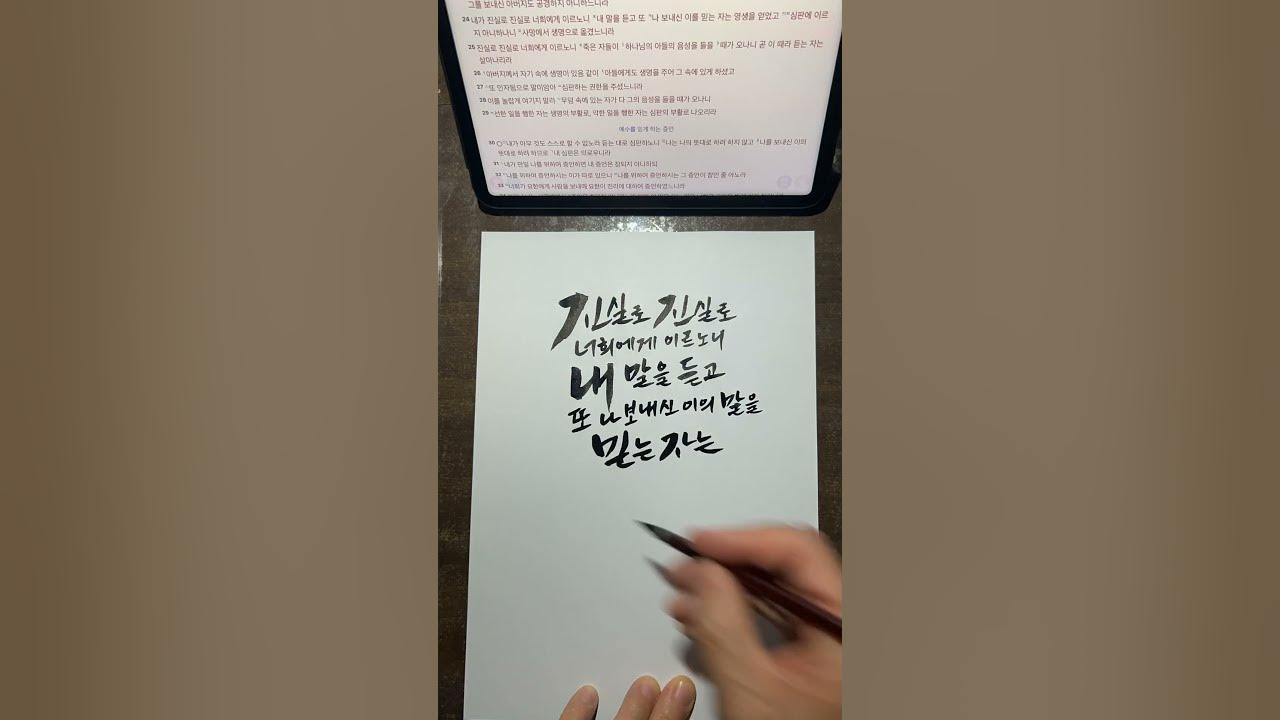 그를 보내신 아버지도 공경하지 아니하느니라
24 내가 진실로 진실로 너희에게 이르노니 내 말을 듣고 또 나 보내신 이를 믿는 자는 영생을 얻었고 심판에 이르
지 아니하나니 사망에서 생명으로 옮겼느니라
25 진실로 진실로 너희에게 이르노니 죽은 자들이 하나님의 아들의 음성을 들을 때가 오나니 곧 이 때라 듣는 자는
살아나리라
26 아버지께서 자기 속에 생명이 있음 같이 아들에게도 생명을 주어 그 속에 있게 하셨고
27 또 인자됨으로 말미암아 심판하는 권한을 주셨느니라
28 이를 놀랍게 여기지 말라 무덤 속에 있는 자가 다 그의 음성을 들을 때가 오나니
29 선한 일을 행한 자는 생명의 부활로, 악한 일을 행한 자는 심판의 부활로 나오리라
예수를 믿게 하는 증언
30 ○내가 아무 것도 스스로 할 수 없노라 듣는 대로 심판하노니 나는 나의 뜻대로 하려 하지 않고 나를 보내신 이의
뜻대로 하려 하므로 내 심판은 의로우니라
31 내가 만일 나를 위하여 증언하면 내 증언은 참되지 아니하되
32 나를 위하여 증언하시는 이가 따로 있으니 나를 위하여 증언하시는 그 증언이 참인 줄 아노라
33 너희가 요한에게 사람을 보내매 요한이 진리에 대하여 증언하였느니라
진실로 진실로
너희에게 이르노니
내 말을 듣고
또 나 보내신 이의 말을
믿는 자는